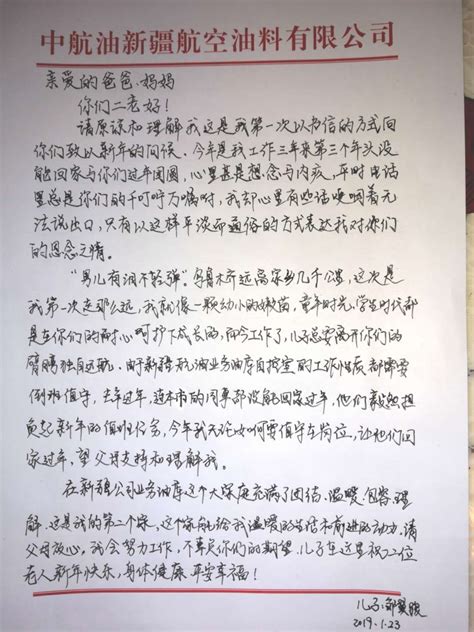 中航油新疆航空油料有限公司
亲爱的爸爸、妈妈
你们二老好！
请原谅和理解我这是我第一次以书信的方式向
你们致以新年的问候。今年是我工作三年来第三个年头没
能回家与你们过年团圆，心里甚是想念与内疚，平时电话
里总是你们的千叮呼万嘱咐，我却心里有些话哽咽着无
法说出口，只有以这样平淡而通俗的方式表达我对你们
的思念之情。
“男儿有泪不轻弹”。乌鲁木齐远离家乡几千公里，这次是
我第一次走那么远，我就像一颗幼小的嫩苗，童年时光、学生时代都
是在你们的耐心呵护下成长的，而今工作了，儿子总要离开你们的
臂膀独自远航。由于新疆航油业务油库自控室的工作性质都需要
倒班值守，去年过年，连本市的同事都没能回家过年，他们毅然担
负起新年的值班任务，今年我无论如何要值守在岗位，让他们回
家过年，望父母支持和理解我。
在新疆公司业务油库这个大家庭充满了团结、温暖、包容、理
解。这是我的第二个家，这个家能给我温暖的生活和前进的动力。请
父母放心，我会努力工作，不辜负你们的期望。儿子在这里祝二位
老人新年快乐，身体健康，平安幸福！
儿子：
2019.1.23